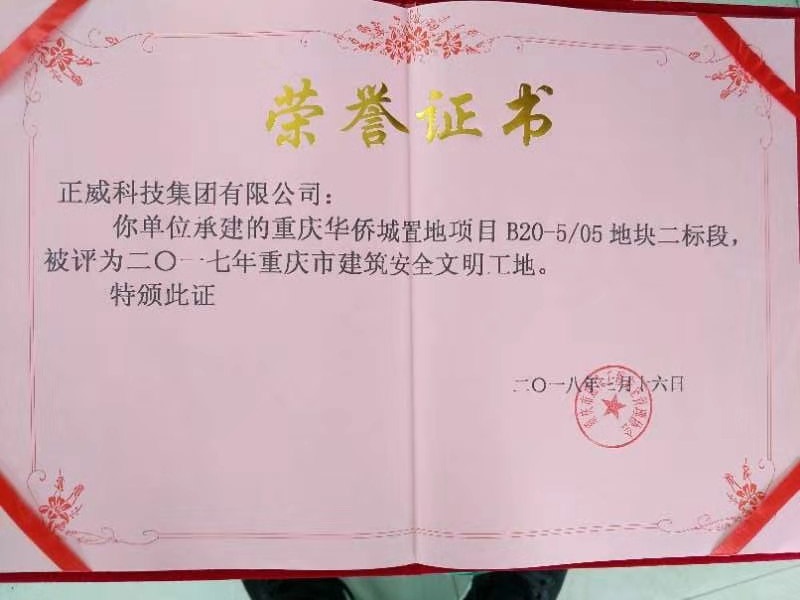 荣誉证书
正威科技集团有限公司：
你单位承建的重庆华侨城置地项目 B20-5/05 地块二标段，
被评为二〇一七年重庆市建筑安全文明工地。
特颁此证
二〇一八年 月十六日